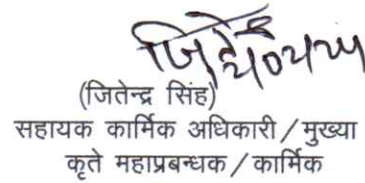 (जितेन्द्र सिंह)
सहायक कार्मिक अधिकारी / मुख्या
कृते महाप्रबन्धक / कार्मिक